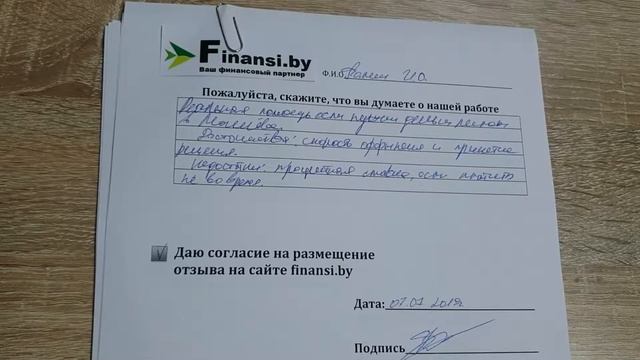 Finansi.by
Ваш финансовый партнер
Ф.И.О
Пожалуйста, скажите, что вы думаете о нашей работе
Реальная помощь если нужны деньги
в Могилёве.
Достоинства: скорость оформления и принятие
решения.
Недостатки: процентная ставка, если платить
не во время.
Даю согласие на размещение
отзыва на сайте finansi.by
Дата: 07.01 2019г
Подпись